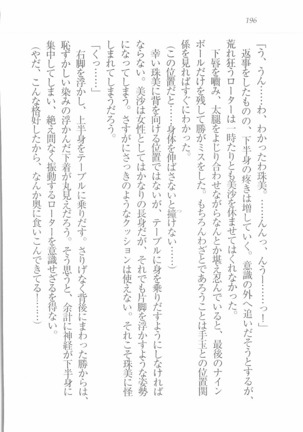 196
「う、うん……わ、わかったわ珠美。……んんっ、んう!……っ!」
返事をしたものの、下半身の疼きは増していく。意識の外へ追いだそうとするが、
荒れ狂うローターは一時たりとも美沙を休ませてはくれなかった。
下唇を噛み、太腿をよじり合わせながらなんとか堪え忍んでいると、最後のナイン
ボールだけを残して勝がミスをした。もちろんわざとであろうことは手玉との位置関
係でわかる。
(この位置だと……身体を伸ばさないと撞けない……)
幸い珠美に背を向ける位置ではないが、テーブルに身を乗りだすようにしなければ
ならない。美沙は女性としてはかなりの長身だが、それでも片脚を浮かすような姿勢
になりそうだ。さすがにさっきのようなクッションは使えない。それこそ珠美に怪
しまれてしまうだろう。
「くっ……」
右脚を浮かし、上半身をテーブルに乗りだす。さりげなく背後にまわった勝からは、
恥ずかしい染みの浮かんだ下着が丸見えだろう。そう思うと、余計に神経が下半身に
集中してしまい、絶え間なく振動するローターを意識せざるを得ない。
(やだ、こんな格好したから、なんか奥に食いこんできてる!……)